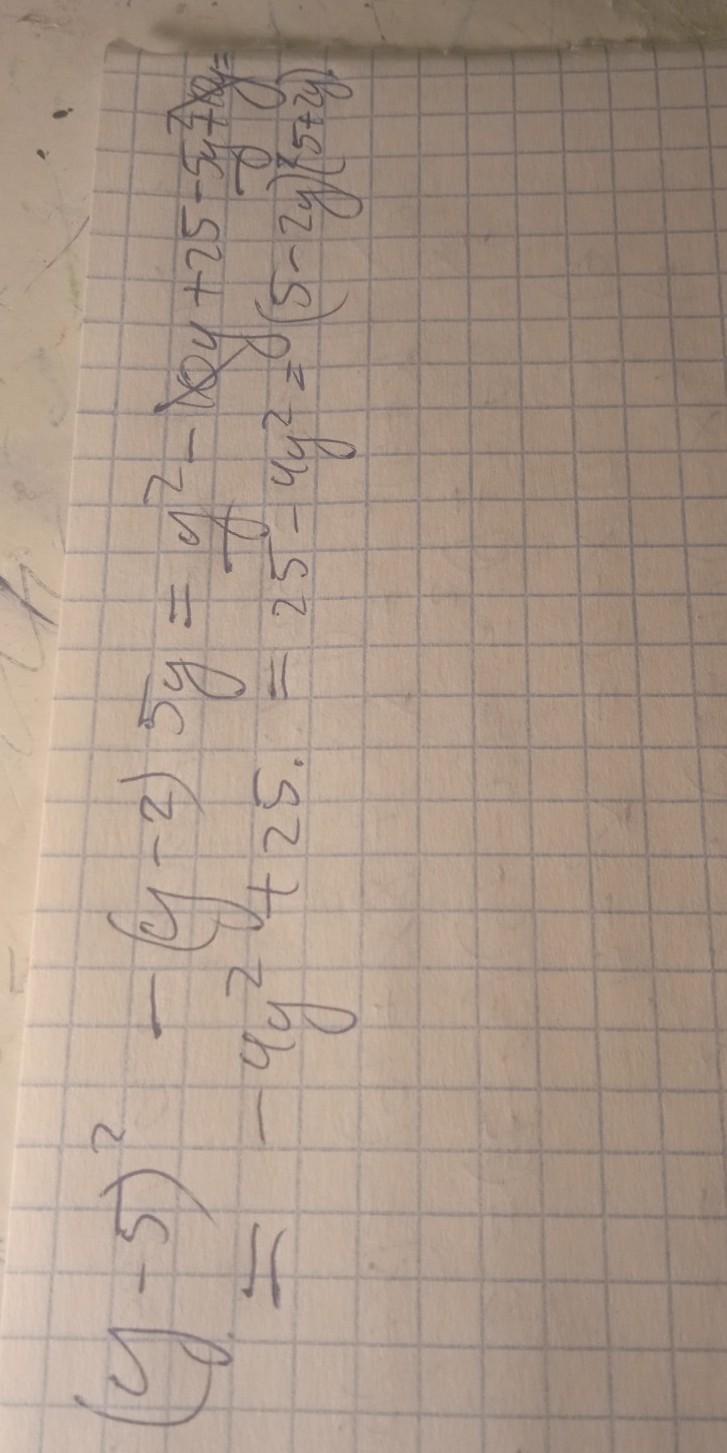 (y-5)² - (y-2) 5y = y² - 10y + 25 - 5y² + 10y =
= -4y² + 25. = 25 - 4y² = (5-2y)(5+2y).